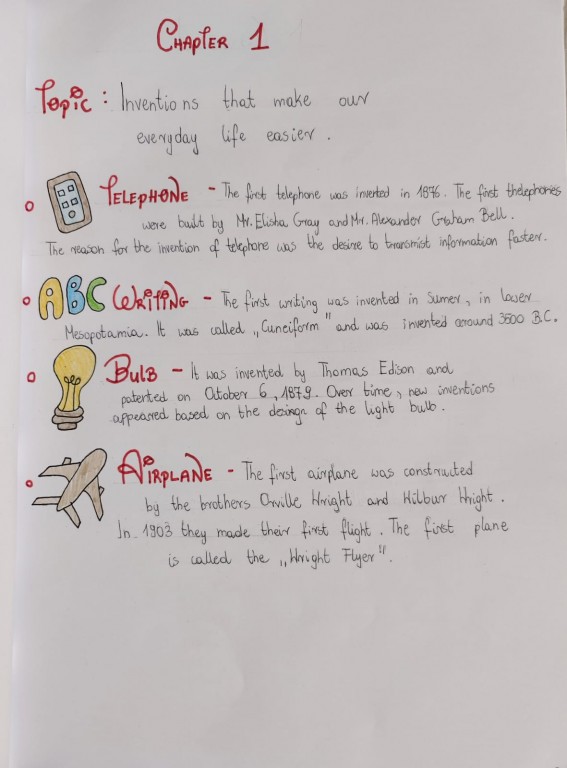 CHAPTER 1
Topic : Inventions that make our
everyday life easier .
TELEPHONE - The first telephone was invented in 1876. The first thelephones
were built by Mr. Elisha Gray and Mr. Alexander Graham Bell .
The reason for the invention of telephone was the desire to transmist information faster.
ABC WRITING - The first writing was invented in Sumer, in lower
Mesopotamia. It was called „Cuneiform" and was invented around 3500 B.C.
BULB - It was invented by Thomas Edison and
patented on October 6, 1879. Over time, new inventions
appeared based on the design of the light bulb.
AIRPLANE - The first airplane was constructed
by the brothers Orville Wright and Wilbur Wright .
In 1903 they made their first flight . The first plane
is called the „Wright Flyer".